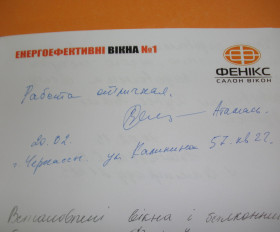 ЕНЕРГОЕФЕКТИВНІ ВІКНА №1
ФЕНІКС
САЛОН ВІКОН
Работа отличная.
Атаман
20.02
г Черкассы. ул Калинина 57. кв 22.
Встановлені вікна і балконні